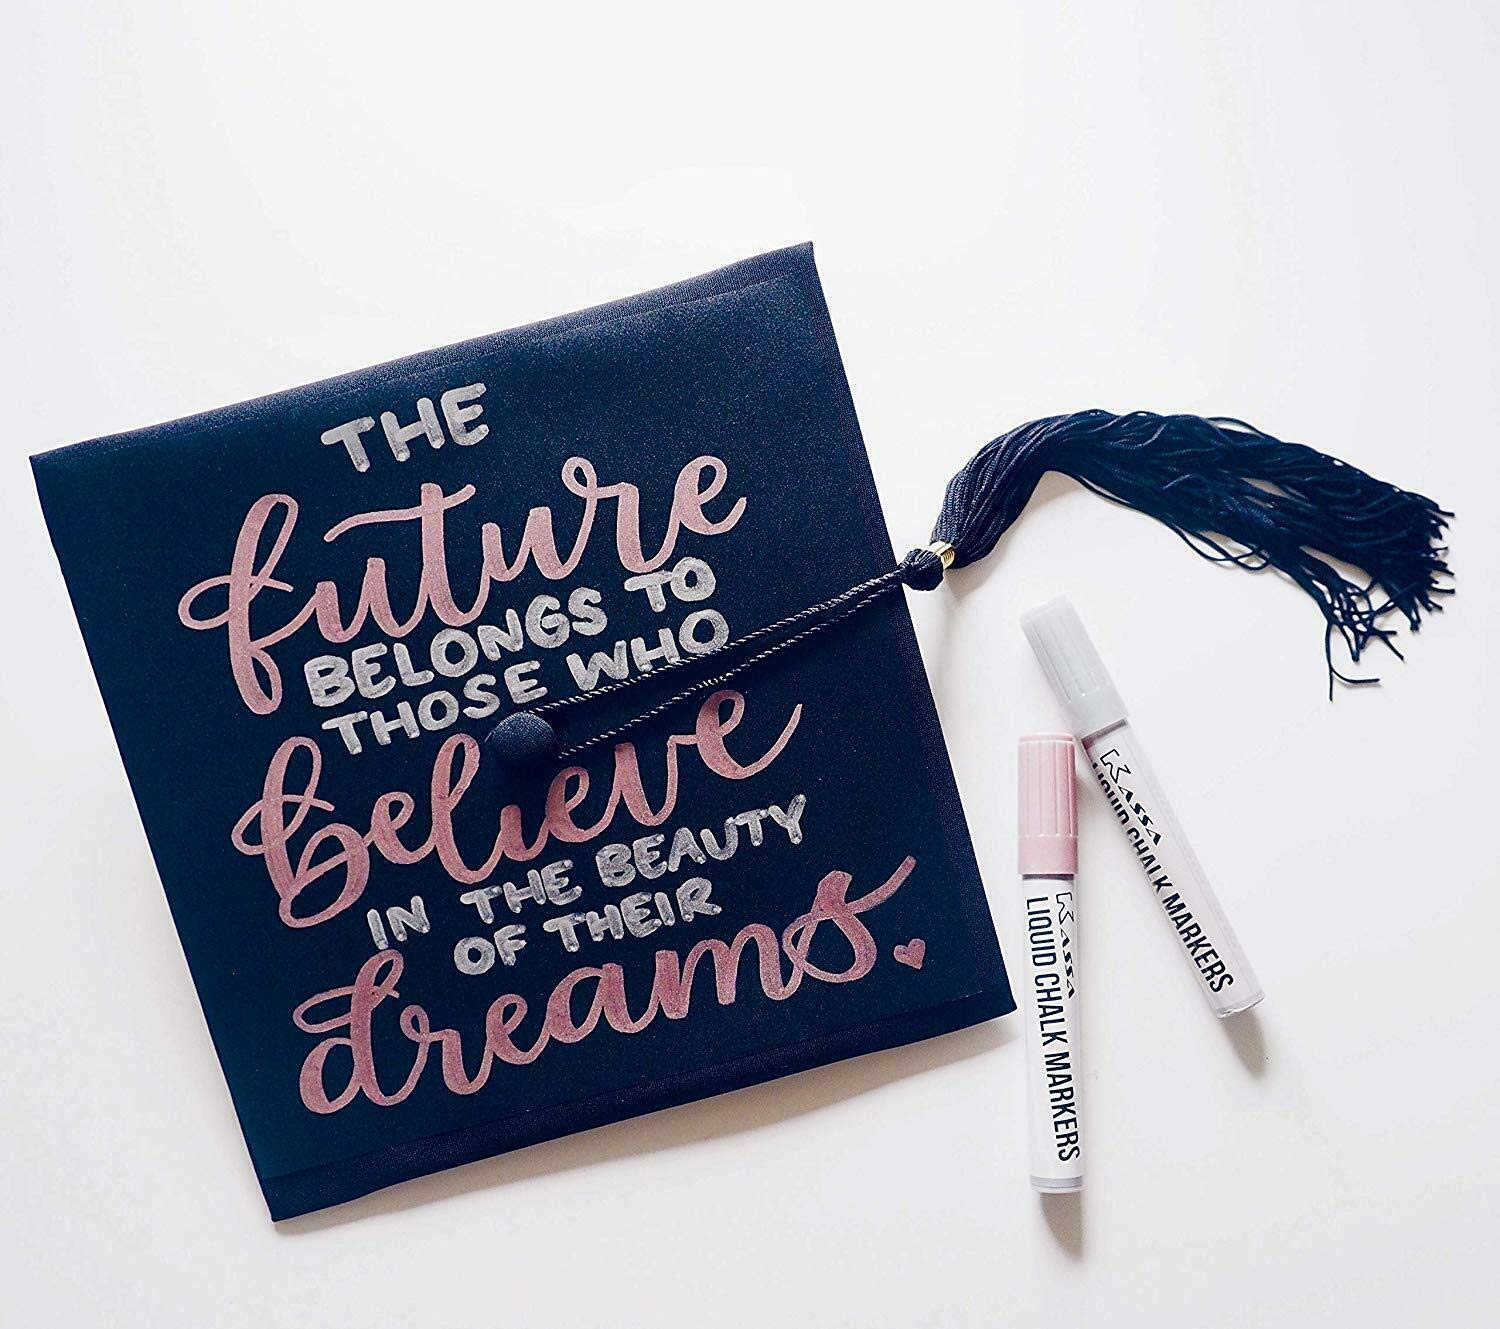 THE
future
BELONGS TO
THOSE WHO
believe
IN THE BEAUTY
OF THEIR
dreams.
KASSA
LIQUID CHALK MARKERS
KASSA
LIQUID CHALK MARKERS